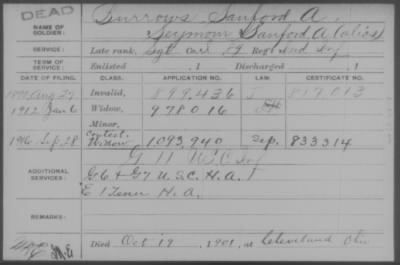 DEAD
NAME OF SOLDIER: Burrows Sanford A.
Seymour Sanford A (alias)
SERVICE: Late rank, Sgt Co. G Reg't Ind Inf
TERM OF SERVICE: Enlisted , 1 Discharged , 1
DATE OF FILING. CLASS. APPLICATION NO. LAW. CERTIFICATE NO.
Aug 27 Invalid, 899,436 I 817,013
1912 Jan 6 Widow, 978016
Minor,
1916 Sep. 28 Contest. Widow 1,093,940 Sep. 833314
ADDITIONAL SERVICES: G 11 U.S.C. Inf
G 6 & G 7 U.S.C. H.A.
E 1 Tenn H.A.
REMARKS:
Died Oct 19, 1901, at Cleveland Ohio